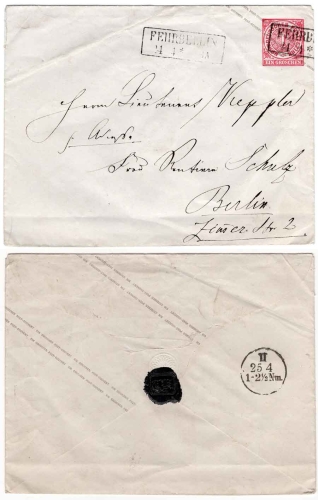 FEHRBELLIN
FEHRBELLIN
EIN GROSCHEN
Herrn Lieutenant Keppler
p. Adresse
Frau Rentiere Schulz
Berlin
Zimmer Str. 2
II
25 4
1-2½ Nm.